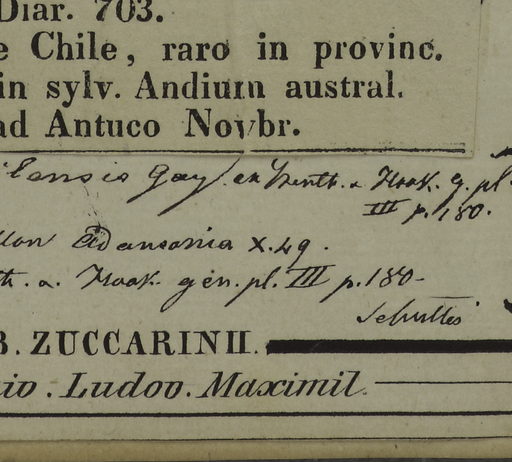 Diar. 703.
e Chile, raro in provinc.
in sylv. Andium austral.
ad Antuco Novbr.
ilensis Gay. ex Benth. & Hook. g. pl.
III p. 180.
llon Adansonia X. 49.
th. & Hook. gen. pl. III p. 180
B. ZUCCARINII.
io. Ludov. Maximil.